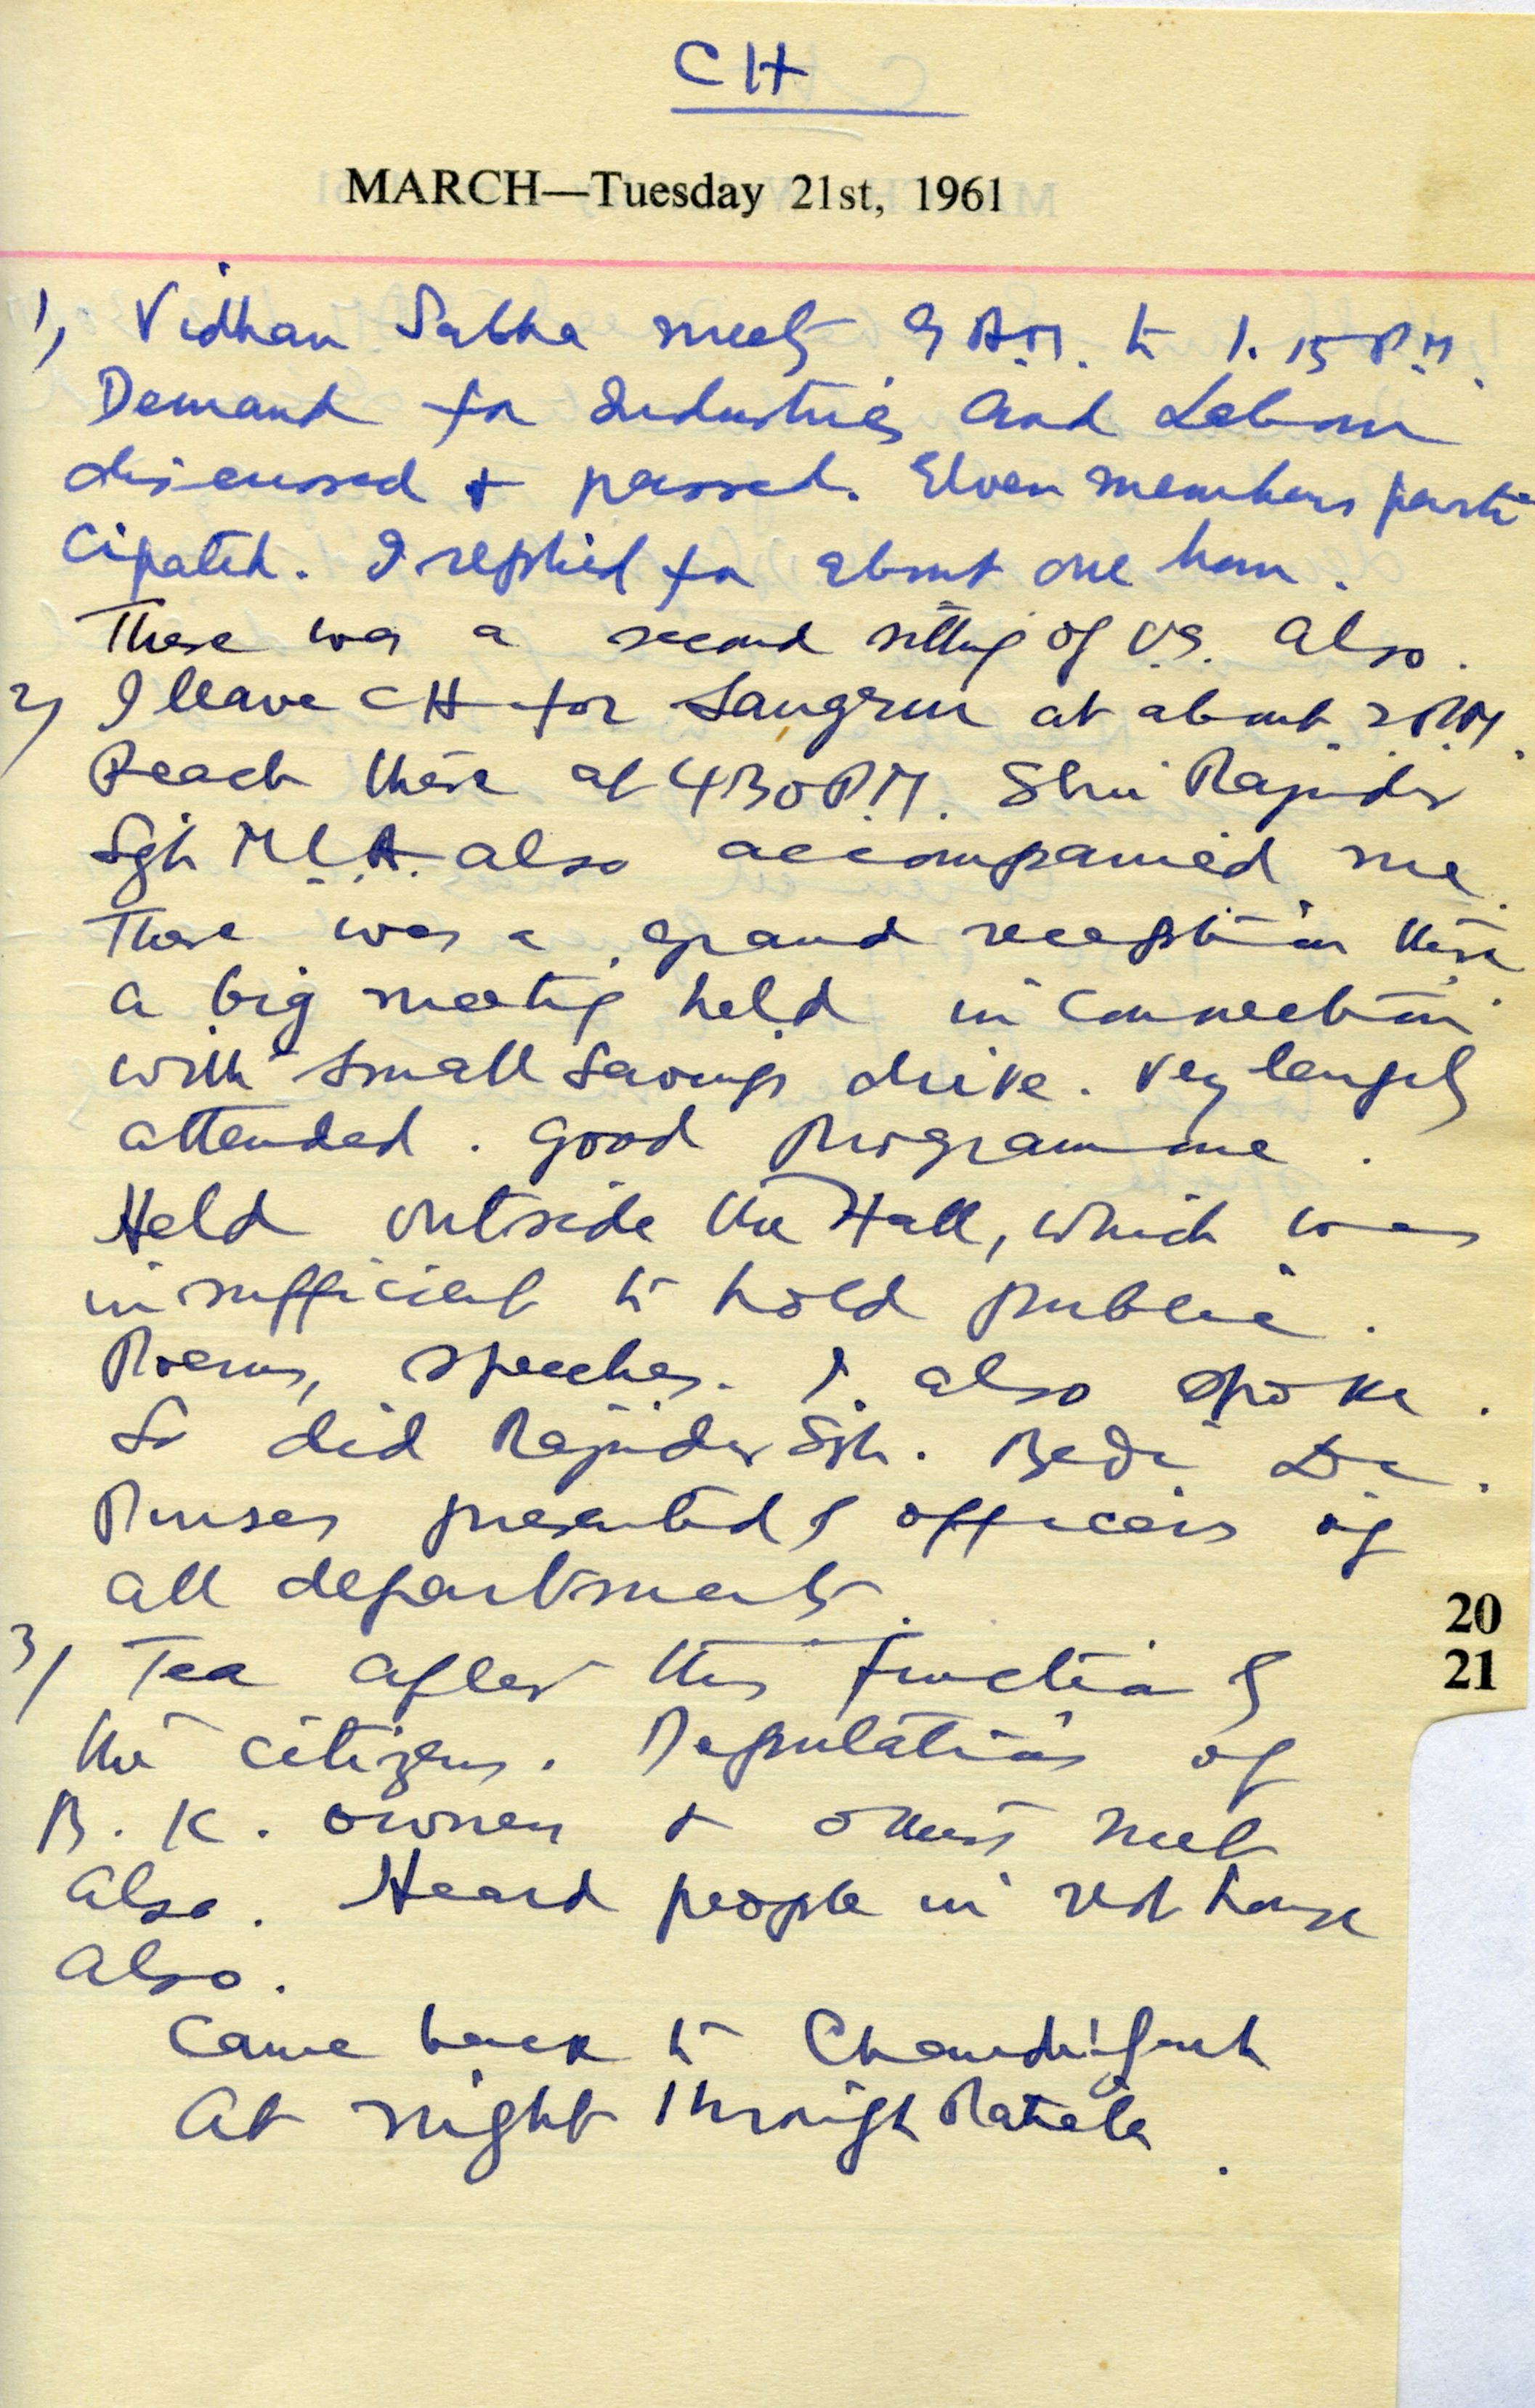 CH
MARCH—Tuesday 21st, 1961
1) Vidhan Sabha meets 9 A.M. to 1.15 P.M.
Demand for Industries and Labour
discussed & passed. Elven members parti
cipated. I replied for about one hour.
There was a second sitting of V.S. also.
2) I leave CH for Sangrur at about 2 P.M.
Reach there at 430 P.M. Shri Rajinder
Sgh M.L.A. also accompanied me.
There was a grand reception there
a big meeting held in connection
with Small Savings drive. Very largely
attended. Good Programme.
Held outside the Hall, which was
insufficient to hold public.
Poems, speeches. I also spoke.
So did Rajinder Sgh. Bedi
Purses presented by officers of
all departments.
3) Tea after this function by
the citizens. Deputations of
B.K. owners & others met
also. Heard people in rest house
also.
Came back to Chandigarh
At night through Patiala.
20
21